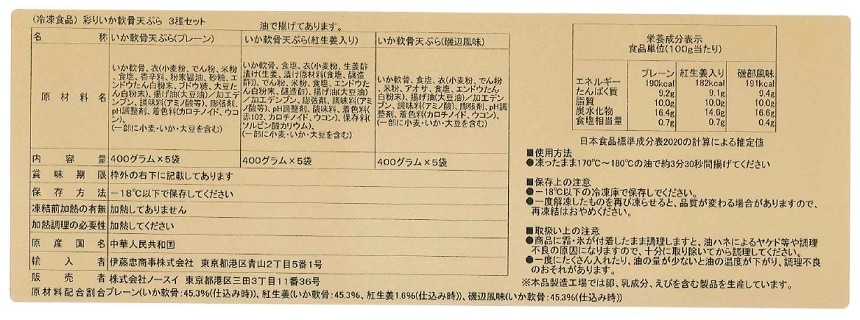 (冷凍食品) 彩りいか軟骨天ぷら 3種セット
油で揚げてあります。
名称 いか軟骨天ぷら(プレーン) いか軟骨天ぷら(紅生姜入り) いか軟骨天ぷら(磯辺風味)
原材料名
いか軟骨、衣(小麦粉、でん粉、米粉、食塩、香辛料、粉末醤油、砂糖、エンドウたん白粉末、ブドウ糖、大豆たん白粉末)、揚げ油(大豆油)/加工デンプン、調味料(アミノ酸等)、膨張剤、pH調整剤、着色料(カロチノイド、ウコン)、
(一部に小麦・いか・大豆を含む)
いか軟骨、食塩、衣(小麦粉、生姜酢漬け(生姜、漬け原材料(食塩、醸造酢))、でん粉、米粉、食塩、エンドウたん白粉末、醸造酢)、揚げ油(大豆油)/加工デンプン、膨張剤、調味料(アミノ酸等)、pH調整剤、酸味料、着色料(赤102、カロチノイド、ウコン)、保存料(ソルビン酸カリウム)、
(一部に小麦・いか・大豆を含む)
いか軟骨、食塩、衣(小麦粉、でん粉、米粉、アオサ、食塩、エンドウたん白粉末)、揚げ油(大豆油)/加工デンプン、調味料(アミノ酸)、膨張剤、pH調整剤、着色料(カロチノイド、ウコン)、
(一部に小麦・いか・大豆を含む)
内容量 400グラム×5袋 400グラム×5袋 400グラム×5袋
賞味期限 枠外の右下に記載してあります
保存方法 −18℃以下で保存してください
凍結前加熱の有無 加熱してありません
加熱調理の必要性 加熱してください
原産国名 中華人民共和国
輸入者 伊藤忠商事株式会社 東京都港区青山2丁目5番1号
販売者 株式会社ノースイ 東京都港区三田3丁目11番36号
原材料配合割合プレーン(いか軟骨:45.3%(仕込み時))、紅生姜(いか軟骨:45.3%、紅生姜1.6%(仕込み時))、磯辺風味(いか軟骨:45.3%(仕込み時))
栄養成分表示
食品単位(100g当たり)
プレーン 紅生姜入り 磯部風味
エネルギー 190kcal 182kcal 191kcal
たんぱく質 9.2g 9.1g 9.4g
脂質 10.0g 10.0g 10.0g
炭水化物 16.4g 14.0g 16.6g
食塩相当量 0.7g 0.7g 0.4g
日本食品標準成分表2020の計算による推定値
■使用方法
●凍ったまま170℃〜180℃の油で約3分30秒間揚げてください
■保存上の注意
●−18℃以下の冷凍庫で保存してください。
●一度解凍したものを再び凍らせると、品質が変わる場合がありますので、
再凍結はおやめください。
■取扱い上の注意
●商品に霜・氷が付着したまま調理しますと、油ハネによるヤケド等や調理
不良の原因になりますので、十分に取り除いてから調理してください。
●一度にたくさん入れたり、油の量が少ないと油の温度が下がり、調理不良
のおそれがあります。
※本品製造工場では卵、乳成分、えびを含む製品を生産しています。